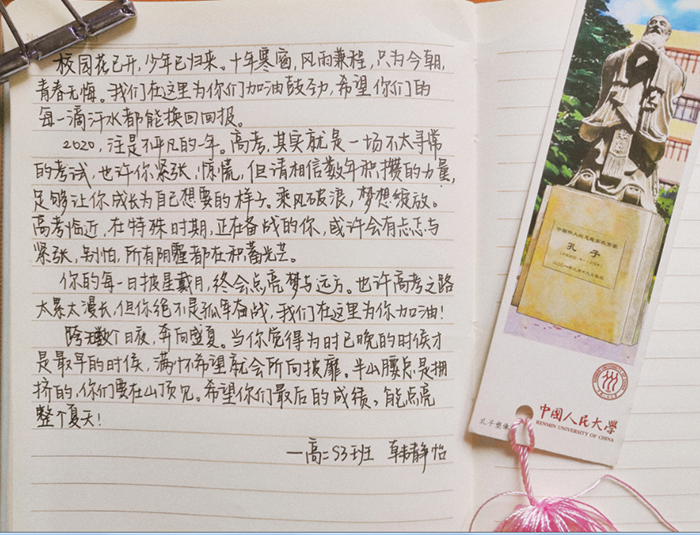 校园花已开,少年已归来。十年寒窗,风雨兼程,只为今朝,
青春无悔。我们在这里为你们加油鼓劲,希望你们的
每一滴汗水都能换回回报。
2020,注定不平凡的一年。高考,其实就是一场不太寻常
的考试,也许你紧张,惊慌,但请相信数年积攒的力量,
足够让你成长为自己想要的样子。乘风破浪,梦想绽放。
高考临近,在特殊时期,正在备战的你,或许会有忐忑与
紧张,别怕,所有阴霾都在积蓄光芒。
你的每一日披星戴月,终会点亮梦与远方。也许高考之路
太累太漫长,但你绝不是孤军奋战,我们在这里为你加油!
跨无数个日夜,奔向盛夏。当你觉得为时已晚的时候才
是最早的时候,满怀希望就会所向披靡。半山腰总是拥
挤的,你们要在山顶见。希望你们最后的成绩,能点亮
整个夏天!
—高二53班 韩静怡
孔子
孔子塑像
中国人民大学
RENMIN UNIVERSITY OF CHINA